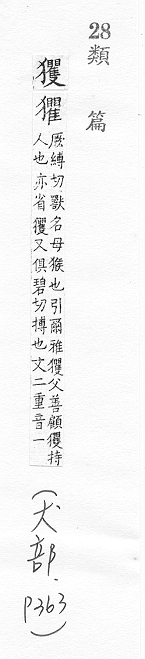 28
類篇
玃 㹤 厥縛切獸名母猴也引爾雅玃父善顧玃持
人也亦省玃又俱碧切搏也文二重音一
(犬部.
P363)